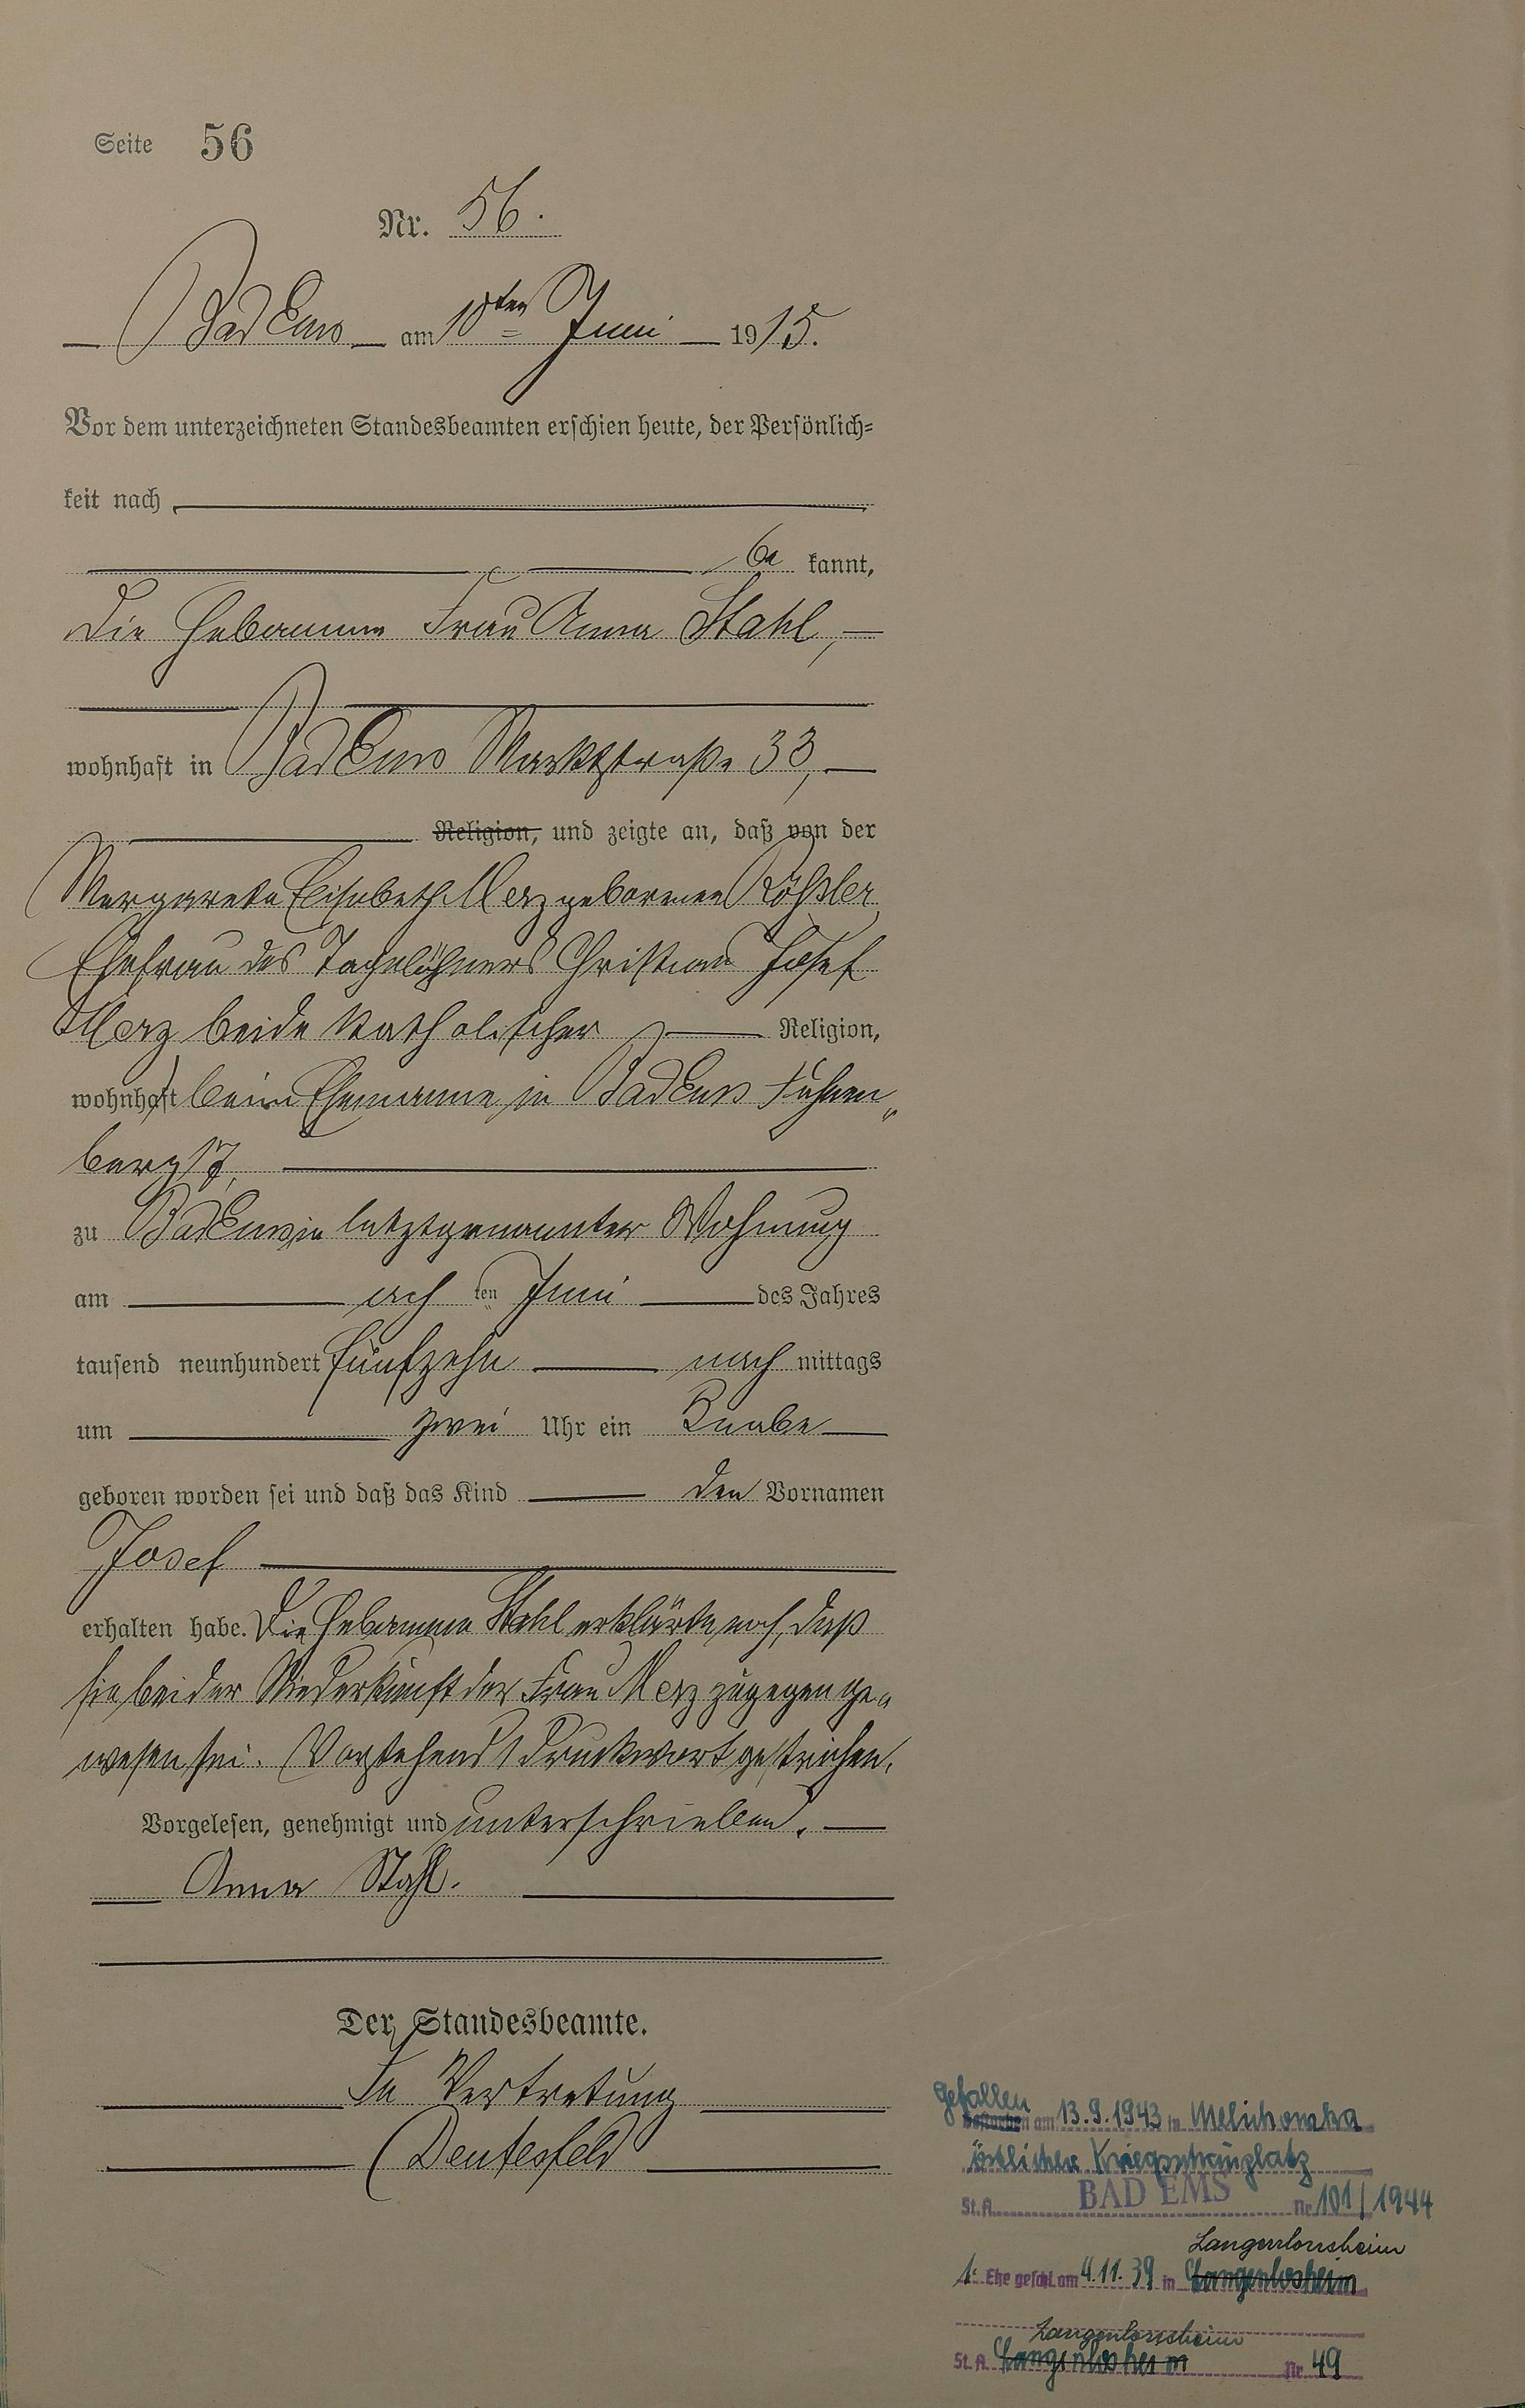 Seite 56
Nr. 56.
Bad Ems am 10ten Juni 1915.
Vor dem unterzeichneten Standesbeamten erschien heute, der Persönlich-
keit nach
be kannt,
die Hebamme Frau Anna Stahl,
wohnhaft in Bad Ems Marktstraße 33,
Religion, und zeigte an, daß von der
Margareta Elisabeth Merz geborenen Rößler
Ehefrau des Tagelöhners Christian Josef
Merz beide katholischer Religion,
wohnhaft beim Ehemanne in Bad Ems
zu Bad Ems in letztgenannter Wohnung
am ach ten Juni des Jahres
tausend neunhundert fünfzehn nach mittags
um zwei Uhr ein Knabe
geboren worden sei und daß das Kind den Vornamen
Josef
erhalten habe. Die Hebamme Stahl erklärte noch, daß
sie bei der Niederkunft der Frau Merz zugegen ge-
wesen sei. (Vorstehend 1 Druckwort gestrichen.
Vorgelesen, genehmigt und unterschrieben.
Anna Stahl.
Der Standesbeamte.
In Vertretung
Deutesfeld
Gefallen am 13.9.1943 in
östlicher Kriegsschauplatz
St. A. BAD EMS Nr. 101/1944
Langenlonsheim
1. Ehe geschl. am 4.11.39 in Langenlosheim
Langenlonsheim
St. A. Langenlosheim Nr. 49